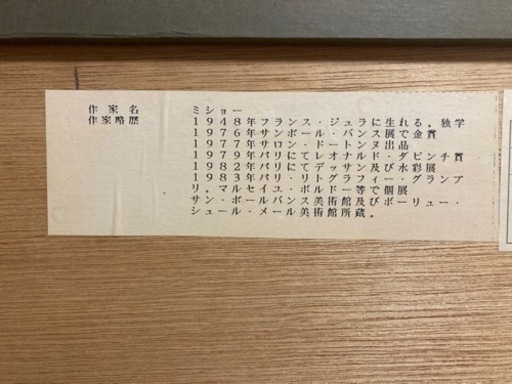 作家名 ミショー
作家略歴 1948年フランス・ジュラに生れる。独学
1976年サンポール・バンス展で金賞
1977年サロン・ドートンヌ出品
1979年パリにてレオナルド・ダビンチ賞
1982年パリにてデッサン及び水彩展
1983年パリ・リトグラフィー・グランプ
リ。マルセイユ・ボルドー等で個展
サン・ポールバンス美術館及びボーリュー・
シュール・メール美術館所蔵。